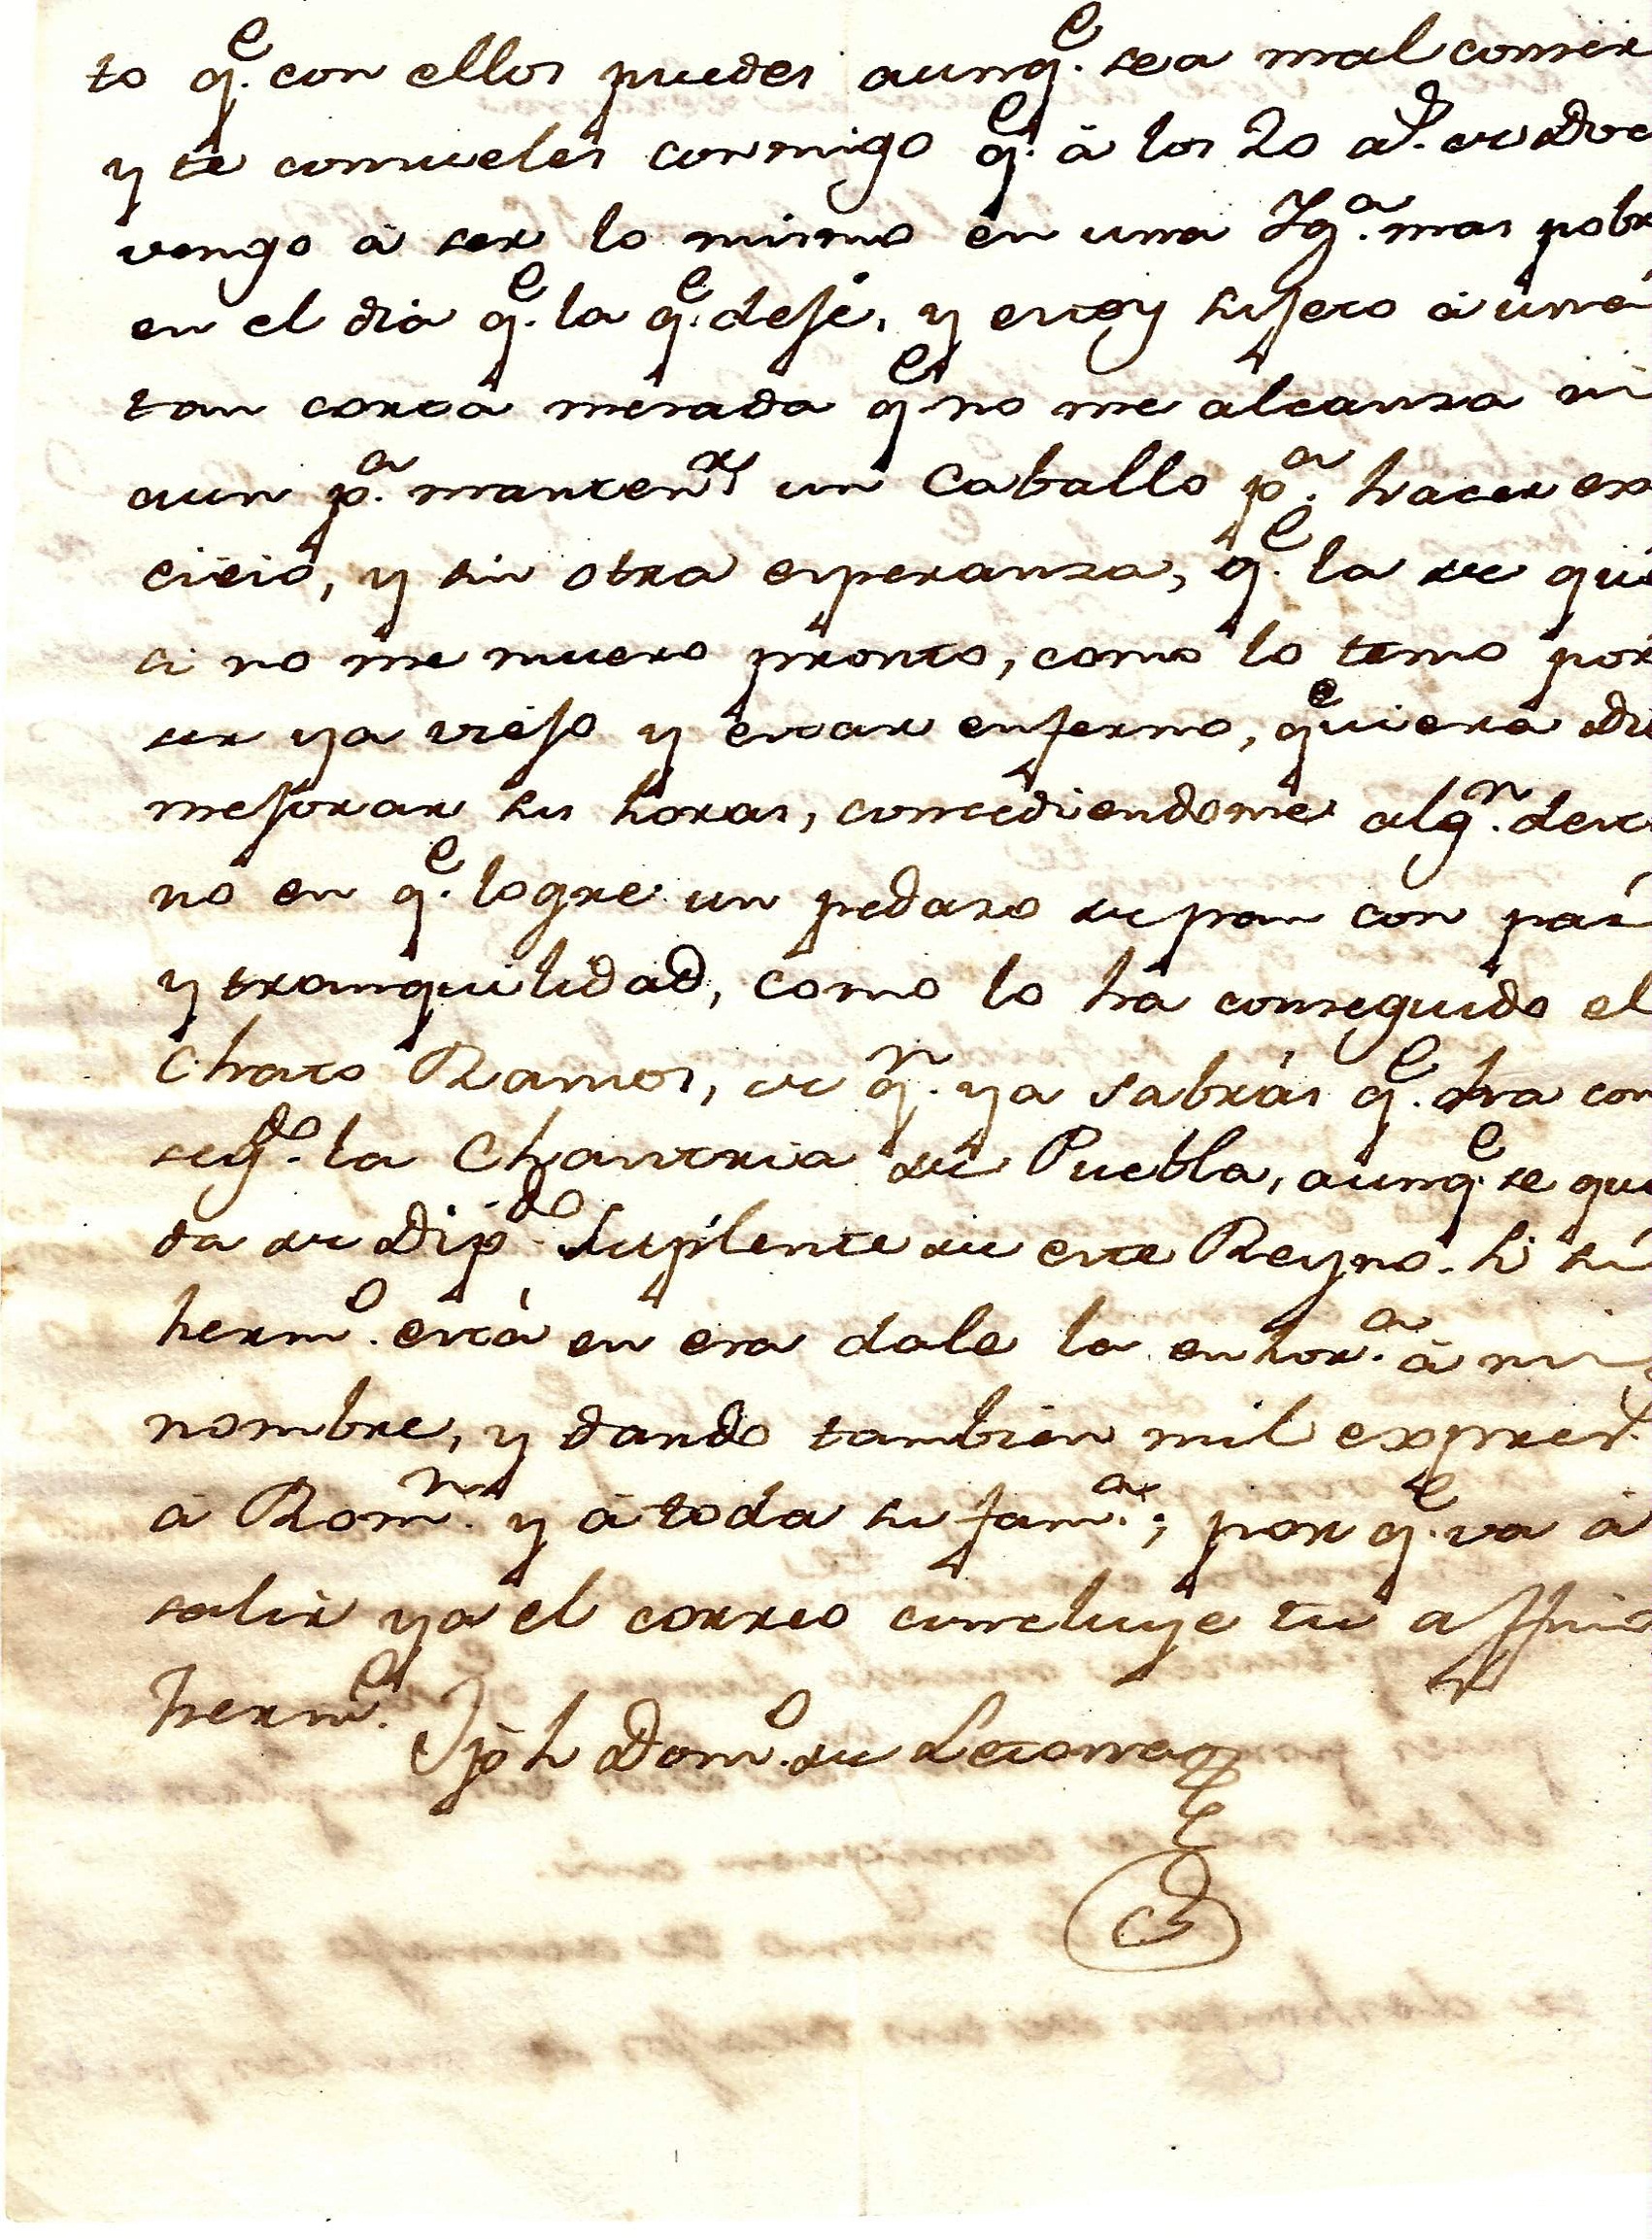 to q.e con ellos puedes aunq.e sea mal comer
y te consueles conmigo q.e â los 20 a.s de Doc
vengo â ser lo mismo en una Yg.a mas pobr
en el dia q.e la q.e dejé, y estoy sujeto â una
tan corta mesada q.e no me alcanza ni
aun p.a mantener un Caballo p.a hacer ex
cicio, y sin otra esperanza, q.e la de que
si no me muero pronto, como lo temo por
ser ya viejo y estar enfermo, quiera Di
mejorar sus horas, concediendome alg.n dest
no en q.e logre un pedazo de pan con paz
y tranquilidad, como lo ha conseguido el
Chato Ramos, de q.n ya sabrás q.e ha con
seg.do la Chantria de Puebla, aunq.e se que
da de Dip.do Suplente de este Reyno. Si su
herm.o está en esa dale la enhor.a â mi
nombre, y dando tambien mil expres.s
â Rom.n y â toda su fam.a; por q.e va â
salir ya el correo concluye tu affmo
herm.o
Jph Dom.o de Letona